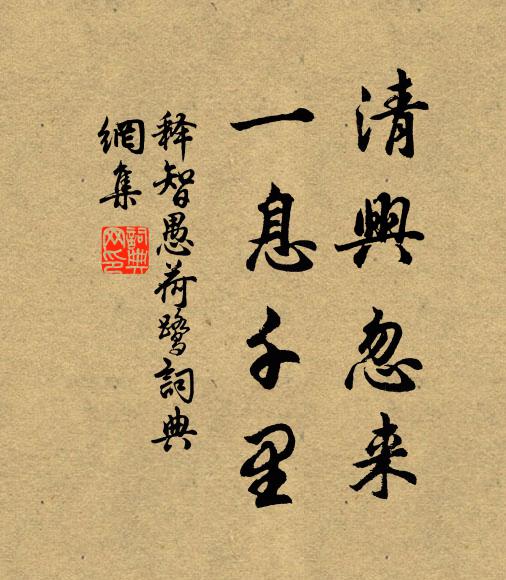 清興忽来
一息千里
释智愚荷鹭詞典
網集
詞典
网印